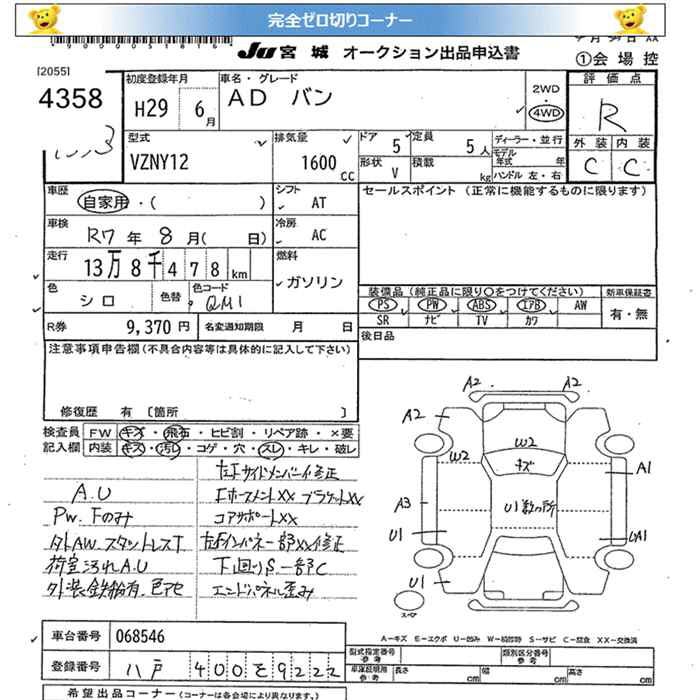 完全ゼロ切りコーナー
JU 宮城 オークション出品申込書
①会場控
[2055]
4358
初度登録年月
H29 6月
車名・グレード
AD バン
2WD
4WD
評価点
R
型式
VZNY12
排気量
1600 CC
ドア 5
定員 5人
形状 V
積載 kg
ディーラー・並行
モデル年式 年
ハンドル 左・右
外装 内装
C C
車歴
自家用・( )
シフト
AT
セールスポイント (正常に機能するものに限ります)
車検
R7年8月( 日)
冷房
AC
走行
13万8千478km
燃料
ガソリン
色
シロ
色替
色コード
QM1
装備品 (純正品に限り○をつけてください)
新車保証書
PS PW ABS エアB AW
SR ナビ TV カワ
有・無
R券 9,370円
名変通知期限 月 日
後日品
注意事項申告欄 (不具合内容等は具体的に記入して下さい)
修復歴 有 〔箇所 〕
検査員記入欄
FW キズ・飛石・ヒビ割・リペア跡・×要
内装 キズ・汚レ・コゲ・穴・スレ・キレ・破レ
A.U
Pw.Fのみ
タトAW スタットレスT
荷室汚れA.U
外装鉄粉有.色アセ
左Fサイドメンバーイ修正
エホースメントXX ブラケットXX
コアサポートXX
左Fインパネ一部XX修正
下回りS一部C
エンドパネル歪み
A2 A2
A2
W2
W2
キズ
A1
A3
U1数ヶ所
U1
UA1
U1
スペア
A－キズ E－エクボ U－凹み W－補修跡 S－サビ C－腐食 XX－交換済
車台番号 068546
登録番号 八戸 400 を 9222
型式指定番号 参考
類別区分番号 参考
車庫証明用 参考
長さ cm
幅 cm
高さ cm
希望出品コーナー (コーナーは各会場により異なります。)